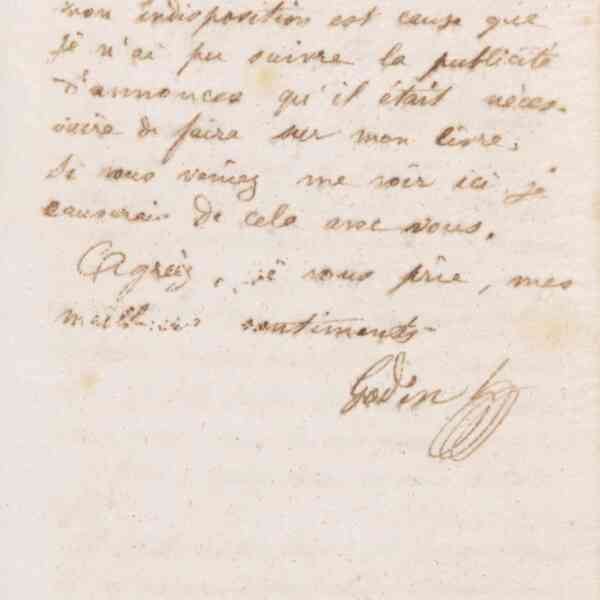 mon indisposition est cause que
je n'ai pu suivre la publicité
d'annonces qu'il était néces-
saire de faire sur mon livre.
Si vous veniez me voir ici je
causerais de cela avec vous.
Agréez, je vous prie, mes
meilleurs sentiments
Godin